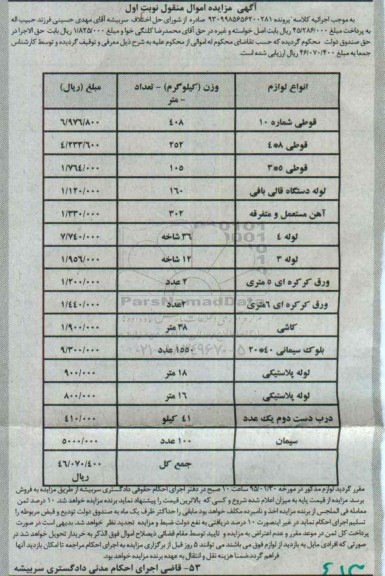 آگهی مزایده اموال منقول نوبت اول
به موجب اجرائیه کلاسه پرونده ۹۳۰۹۹۸۵۶۵۶۲۰۰۲۸۱ صادره از شورای حل اختلاف سربیشه آقای مهدی حسینی فرزند حبیب اله
به پرداخت مبلغ ۴۵/۲۸۶/۰۰۰ ریال بابت اصل خواسته و غیره در حق آقای محمدرضا کلنگی خوا و مبلغ ۱/۸۲۵/۰۰۰ ریال بابت حق الاجرا در
حق صندوق دولت محکوم گردیده که حسب تقاضای محکوم له اموالی از محکوم علیه به شرح ذیل معرفی و توقیف گردیده و توسط کارشناس
جمعا به مبلغ ۴۶/۰۷۰/۴۰۰ ریال ارزیابی شده است.
انواع لوازم وزن (کیلوگرم) – تعداد – متر مبلغ (ریال)
قوطی شماره ۱۰ ۴۰۸ ۶/۹۷۶/۸۰۰
قوطی ۸*۴ ۲۵۲ ۴/۲۳۳/۶۰۰
قوطی ۵*۳ ۱۰۵ ۱/۷۶۴/۰۰۰
لوله دستگاه قالی بافی ۱۶۰ ۱/۱۲۰/۰۰۰
آهن مستعمل و متفرقه ۳۰۲ ۱/۳۳۰/۰۰۰
لوله ۴ ۳۶ شاخه ۷/۷۴۰/۰۰۰
لوله ۳ ۱۲ شاخه ۱/۹۵۶/۰۰۰
ورق کرکره ای ۵ متری ۲ عدد ۱/۲۰۰/۰۰۰
ورق کرکره ای ۶ متری ۲ عدد ۱/۴۴۰/۰۰۰
کاشی ۳۸ متر ۱/۹۰۰/۰۰۰
بلوک سیمانی ۴۰*۲۰ ۱۵۵۰ عدد ۹/۳۰۰/۰۰۰
لوله پلاستیکی ۱۸ متر ۹۰۰/۰۰۰
لوله پلاستیکی ۱۶ متر ۸۰۰/۰۰۰
درب دست دوم یک عدد ۴۱ کیلو ۴۱۰/۰۰۰
سیمان ۱۰۰ عدد ۵۰۰۰/۰۰۰
جمع کل ۴۶/۰۷۰/۴۰۰ ریال
مقرر گردید لوازم مذکور در مورخه ۹۵/۰۱/۳۰ ساعت ۱۰ صبح در دفتر اجرای احکام حقوقی دادگستری سربیشه از طریق مزایده به فروش
برسد مزایده از قیمت پایه به میزان اعلام شده شروع و کسی که بالاترین قیمت را پیشنهاد نماید برنده مزایده خواهد شد. ۱۰ درصد ثمن
معامله فی المجلس از برنده مزایده اخذ و نامبرده مکلف خواهد بود مابقی را حداکثر ظرف یک ماه به صندوق دولت تودیع و قبض مربوطه را
تسلیم اجرای احکام نماید در غیر اینصورت ۱۰ درصد دریافتی به نفع دولت ضبط و مزایده تجدید خواهد شد. بدیهی است در صورت
پرداخت کل ثمن در موعد مقرر و عدم اعتراض به مزایده و تایید توسط مقام قضائی ذیصلاح اموال فوق الذکر به خریدار تحویل خواهد شد در
صورتی که افرادی مایل به بازدید از لوازم فوق می باشند می توانند ۵ روز قبل از برگزاری مزایده به اجرای احکام مراجعه تا امکان بازدید آنها
فراهم گردد ضمنا هزینه نقل و انتقال به عهده برنده مزایده خواهد بود.
۵۳- قاضی اجرای احکام مدنی دادگستری سربیشه
ParsNamadData